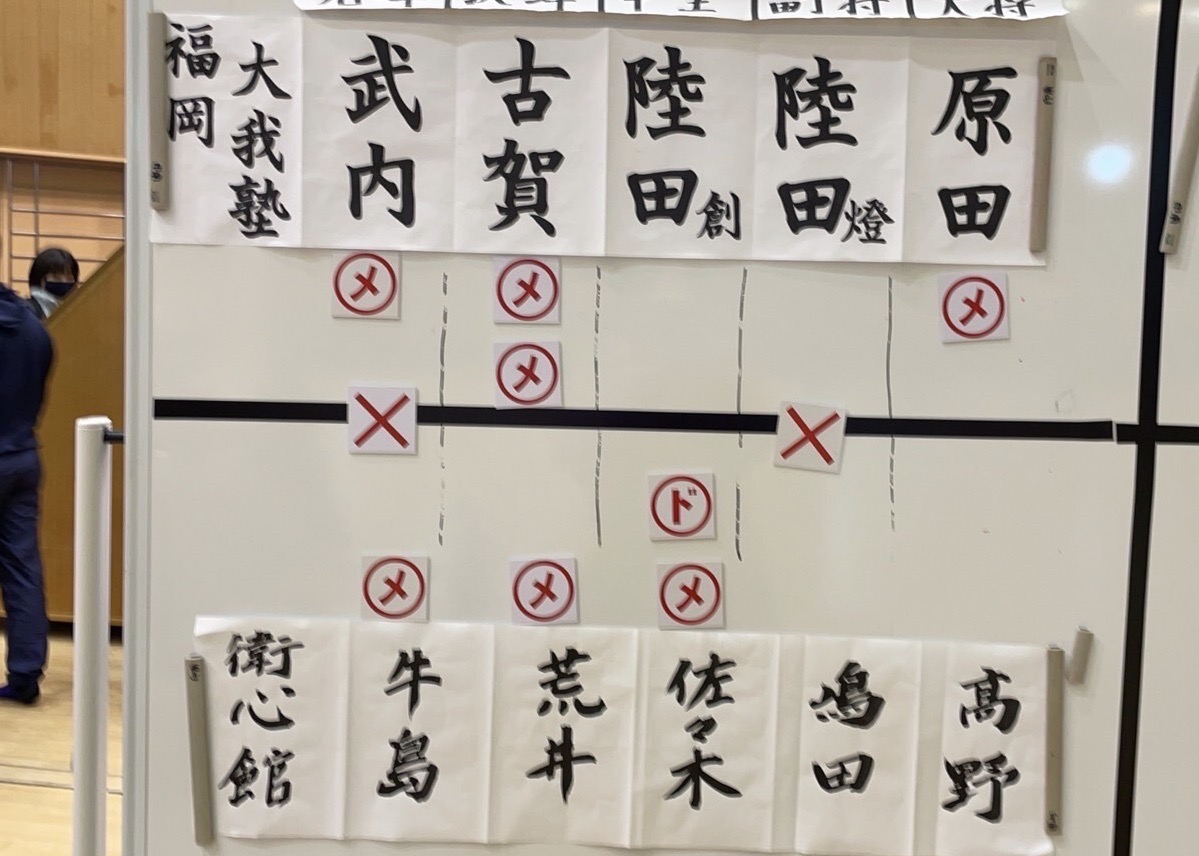 副将
大将
福岡
大我塾
武内
古賀
陸田創
陸田燈
原田
メ
メ
メ
メ
×
×
ド
メ
メ
メ
衛心館
牛島
荒井
佐々木
嶋田
髙野